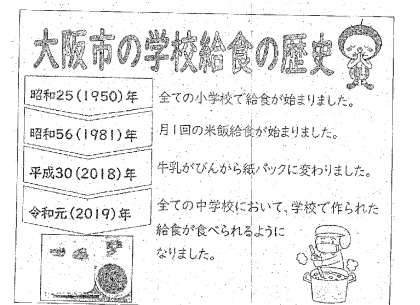 大阪市の学校給食の歴史
昭和25(1950)年
全ての小学校で給食が始まりました。
昭和56(1981)年
月1回の米飯給食が始まりました。
平成30(2018)年
牛乳がびんから紙パックに変わりました。
令和元(2019)年
全ての中学校において、学校で作られた
給食が食べられるように
なりました。